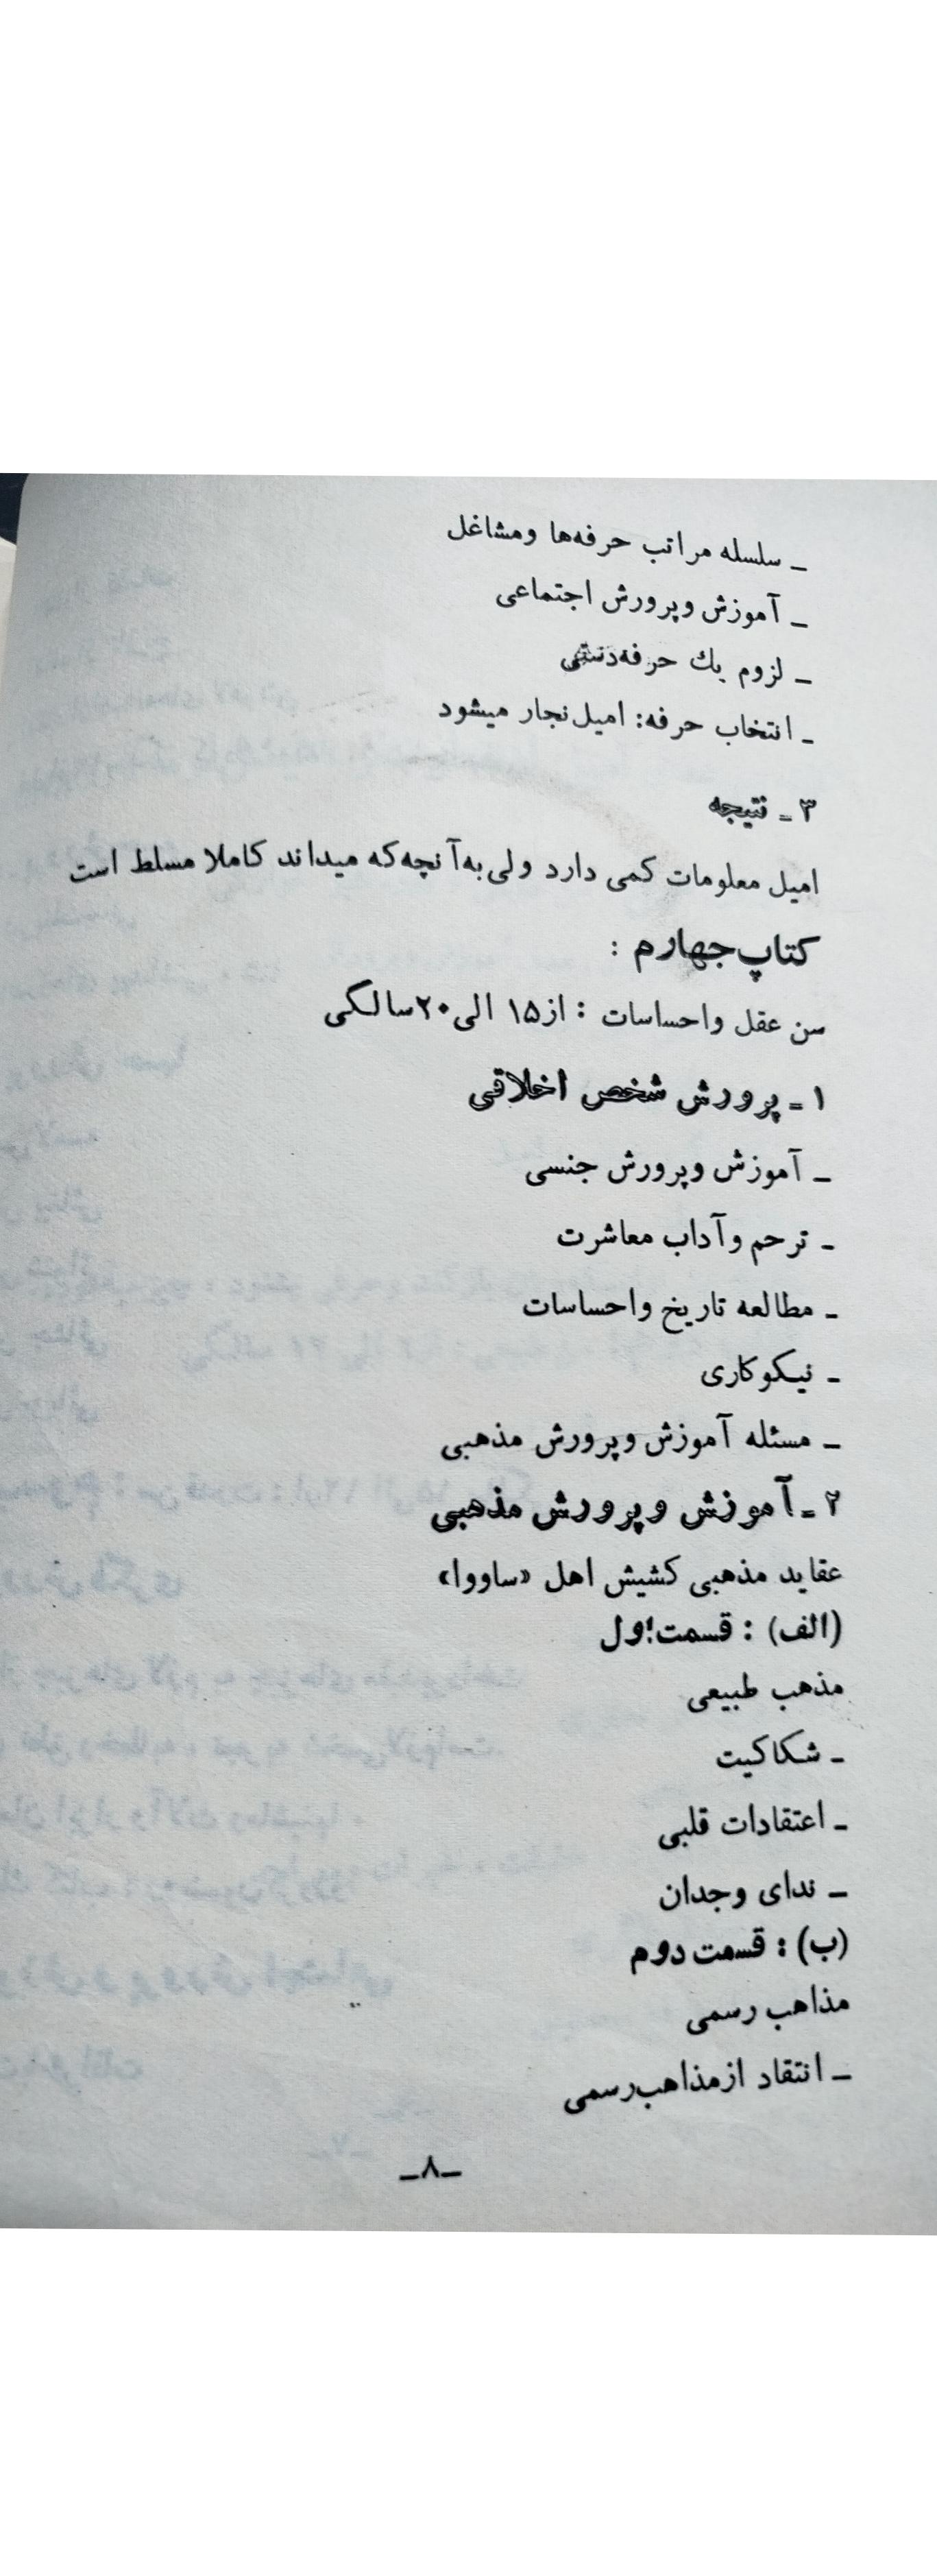 ـ سلسله مراتب حرفه‌ها ومشاغل
ـ آموزش وپرورش اجتماعی
ـ لزوم یك حرفه‌دستی
ـ انتخاب حرفه: امیل‌نجار میشود
۳ ـ نتیجه
امیل معلومات کمی دارد ولی‌به‌آنچه‌که میداند کاملا مسلط است
کتاب‌چهارم :
سن عقل واحساسات : از۱۵ الی۲۰سالگی
۱ ـ پرورش شخص اخلاقی
ـ آموزش وپرورش جنسی
ـ ترحم وآداب معاشرت
ـ مطالعه تاریخ واحساسات
ـ نیکوکاری
ـ مسئله آموزش وپرورش مذهبی
۲ ـ آموزش وپرورش مذهبی
عقاید مذهبی کشیش اهل «ساووا»
(الف) : قسمت‌اول
مذهب طبیعی
ـ شکاکیت
ـ اعتقادات قلبی
ـ ندای وجدان
(ب) : قسمت دوم
مذاهب رسمی
ـ انتقاد ازمذاهب‌رسمی
ـ۸ـ